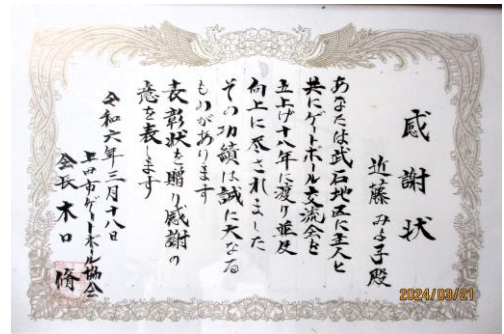 感謝状
近藤みよ子殿
あなたは武石地区に主人と
共にゲートボール交流会を
立上げ十八年に渡り普及
向上に尽されました
その功績は誠に大なる
ものがあります
表彰状を贈り感謝の
意を表します
令和六年三月十八日
上田市ゲートボール協会
会長 木口 脩
2024/03/21